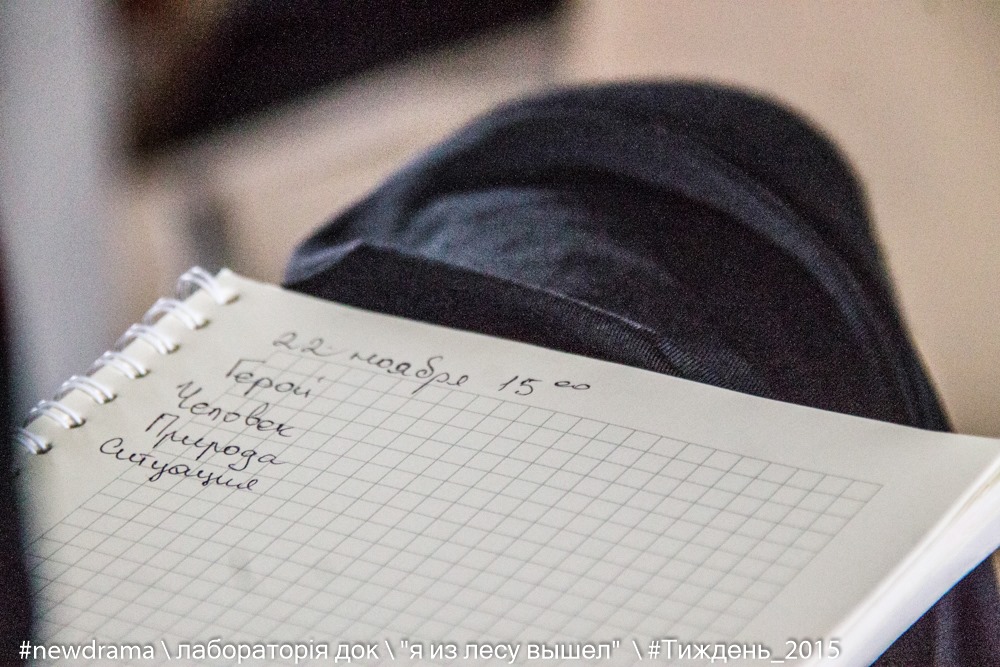 22 ноября 15 00
Герой
Человек
Природа
Ситуация
#newdrama \ лабораторія док \ "я из лесу вышел" \ #Тиждень_2015